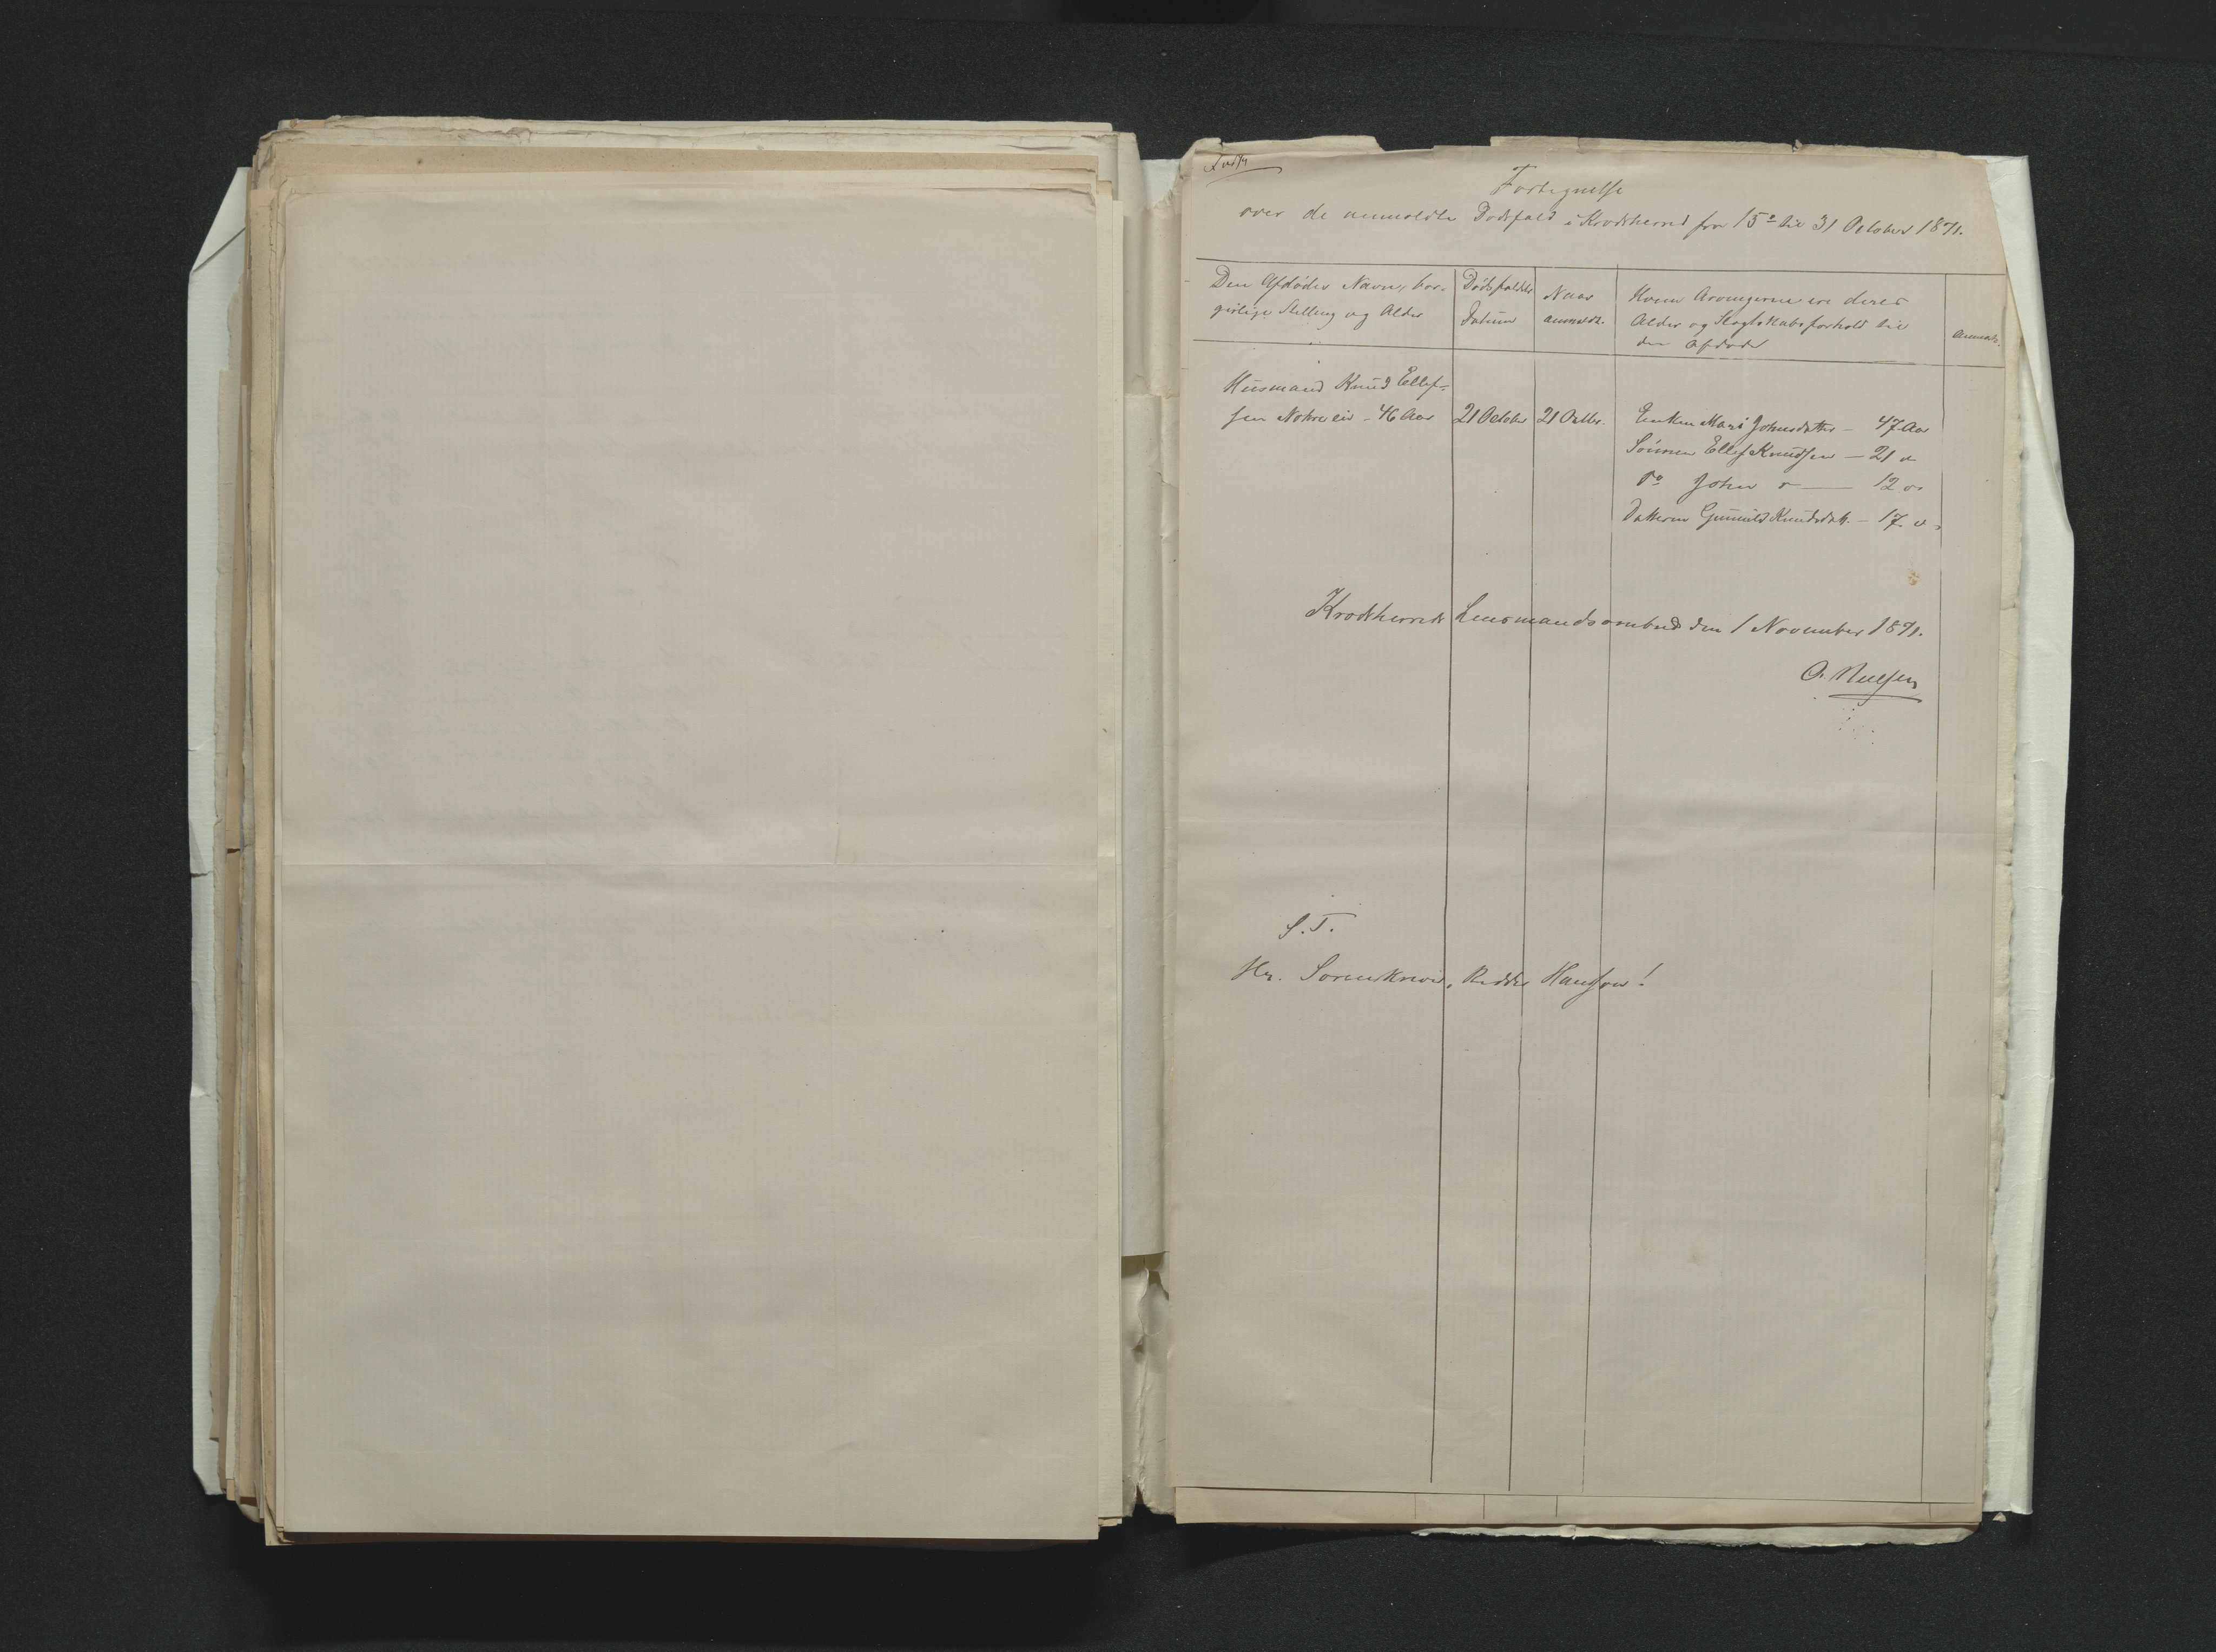 Fortegnelse
over de anmeldte Dødsfald i Krødsherred fra 15de til 31 October 1871.
Den Afdødes Navn, bor-
gerlige Stilling og Alder
Dødsfaldets
Datum
Naar
anmeldt.
Hvem Arvingerne ere deres
Alder og Slægtskabsforhold til
den Afdøde
Anmærk.
Husmand Knud Ellef-
sen Nokreeie - 46 Aar
21 October
21 Octbr.
Enken Mari Johnsdatter - 47 Aar
Sønnen Ellef Knudsen - 21 "
Do John " - 12 "
Datteren Gunnild Knudsdatt. - 17 "
Krødsherreds Lensmandsombud den 1 November 1871.
O. Nielsen
S. T.
Hr. Sorenskriver, Ridder Hansson!